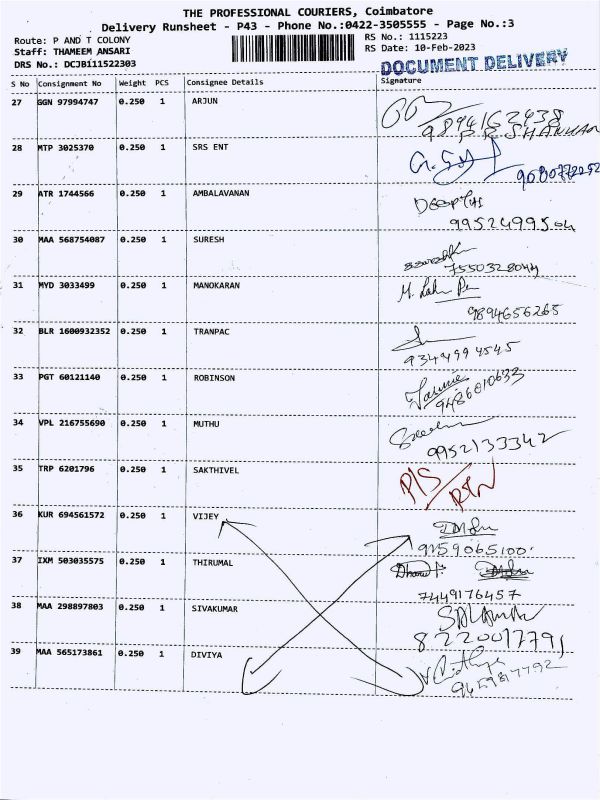 THE PROFESSIONAL COURIERS, Coimbatore
Delivery Runsheet - P43 - Phone No.:0422-3505555 - Page No.:3
Route: P AND T COLONY RS No.: 1115223
Staff: THAMEEM ANSARI RS Date: 10-Feb-2023
DRS No.: DCJB111522303 DOCUMENT DELIVERY
S No Consignment No Weight PCS Consignee Details Signature
27 GGN 97994747 0.250 1 ARJUN
9894162438
28 MTP 3025370 0.250 1 SRS ENT
29 ATR 1744566 0.250 1 AMBALAVANAN
9952499504
30 MAA 568754087 0.250 1 SURESH
7550328044
31 MYD 3033499 0.250 1 MANOKARAN
9894656265
32 BLR 1600932352 0.250 1 TRANPAC
9344994545
33 PGT 60121140 0.250 1 ROBINSON
9486010633
34 VPL 216755690 0.250 1 MUTHU
9952133342
35 TRP 6201796 0.250 1 SAKTHIVEL
36 KUR 694561572 0.250 1 VIJEY
9159065100
37 IXM 503035575 0.250 1 THIRUMAL
7449176457
38 MAA 298897803 0.250 1 SIVAKUMAR
8220017791
39 MAA 565173861 0.250 1 DIVIYA